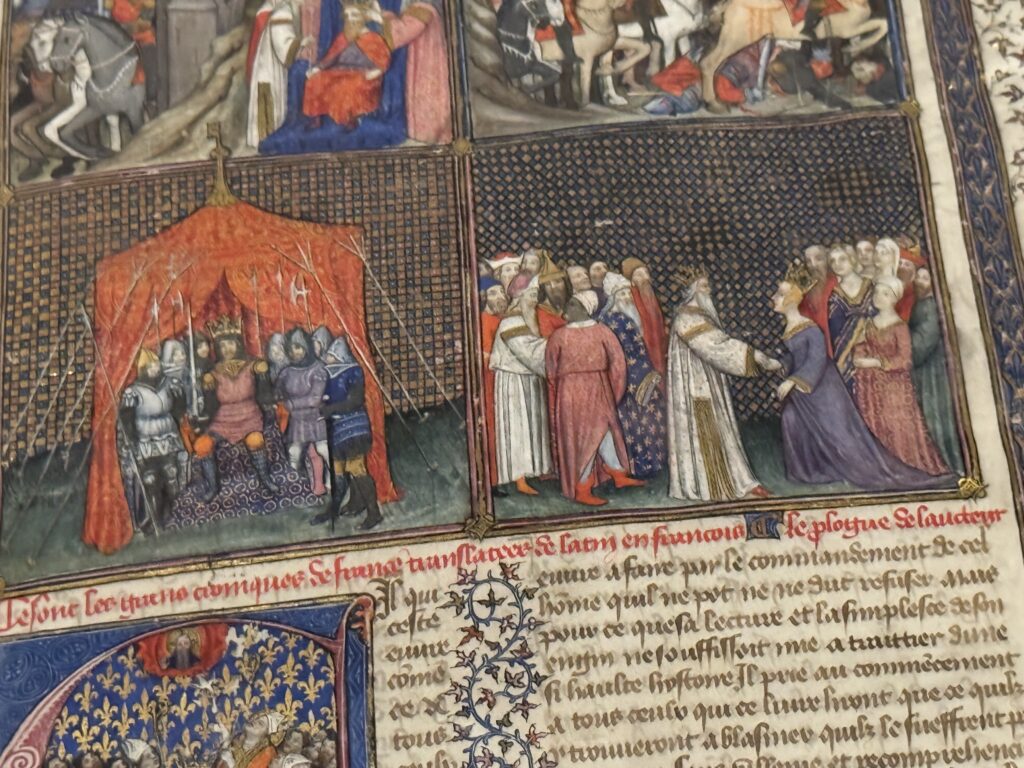 Ce sont les grans croniques de france translatees de latin en francois le prologue de laucteur
Cil qui
ceste
euure
come
ce de
tous
euure a faire par le commandement de cel
home quil ne pot ne ne dut refuser. Mais
pour ce que sa lecture et la simplesce de son
engin ne souffissoit mie a traittier dune
si haulte hystoire. Il prie au commencement
a tous ceulx qui ce liure liront que ce quilz
y trouueront a blasmer quilz le sueffrent